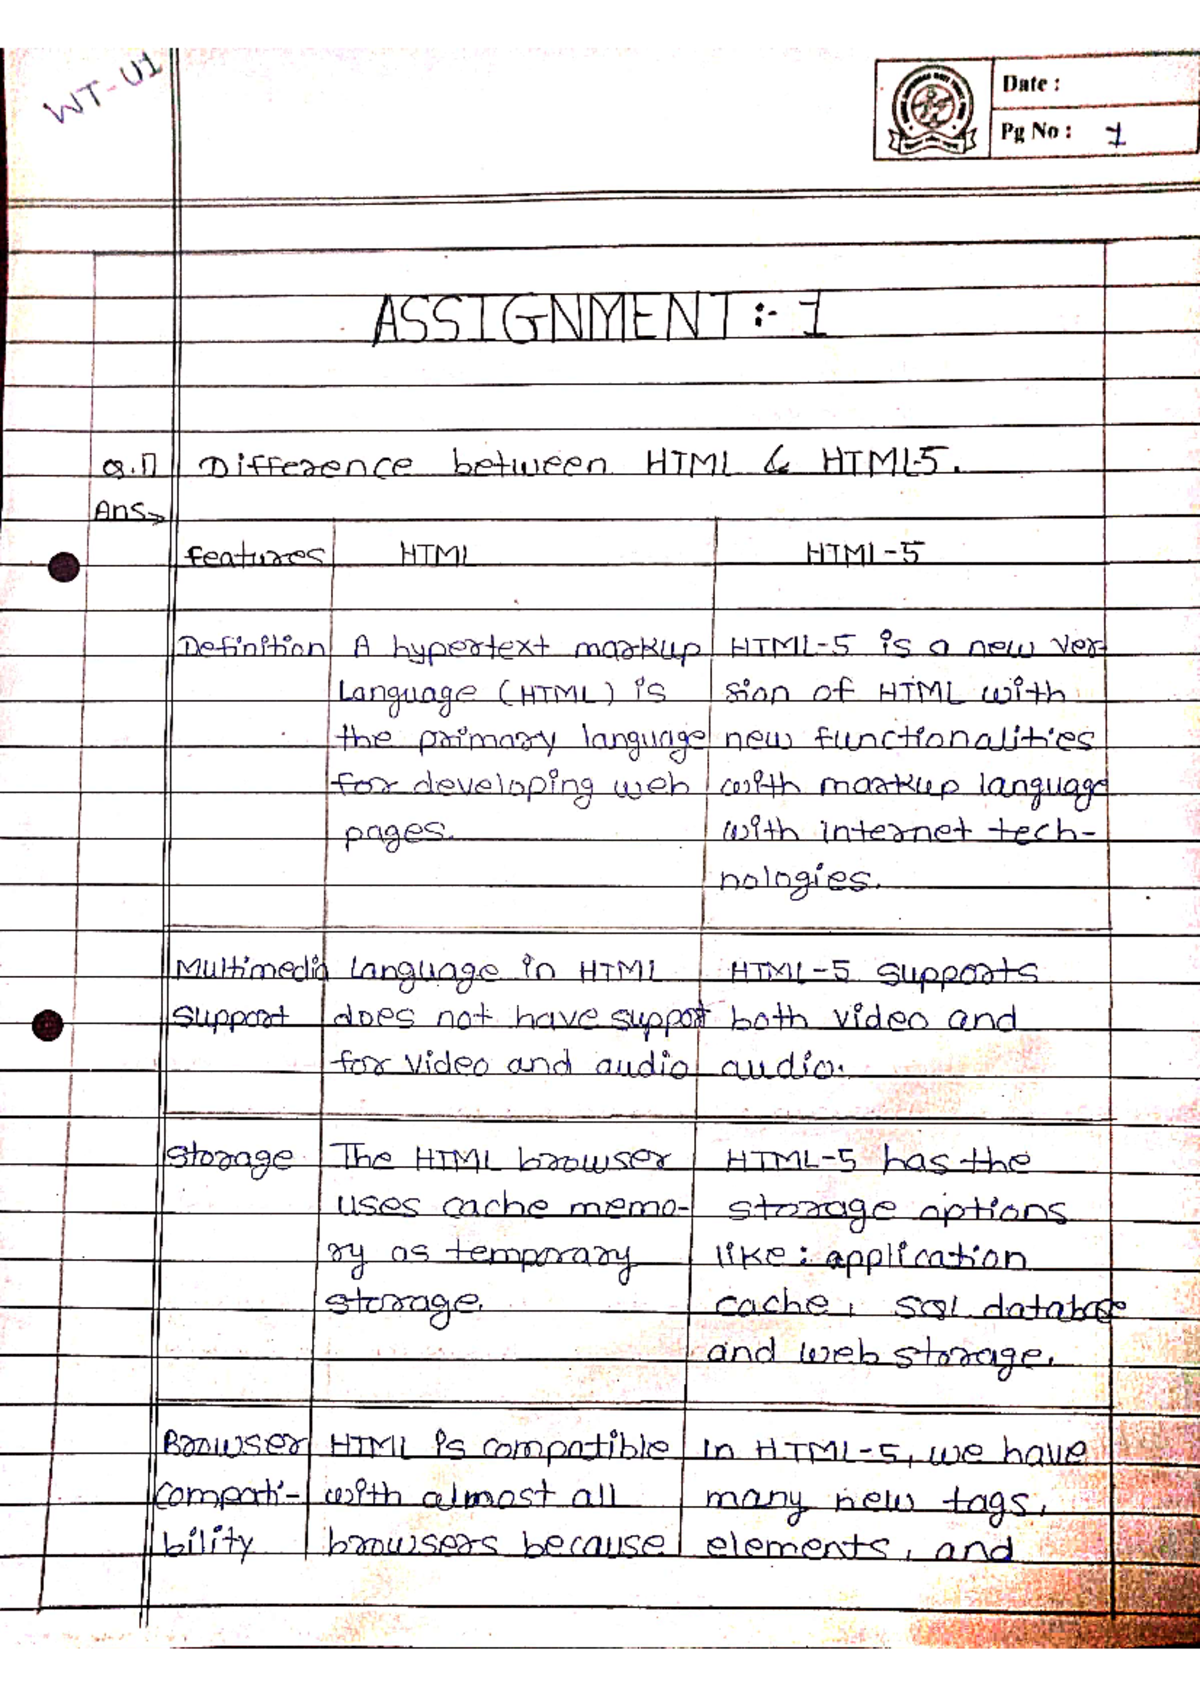 WT-U1
Date :
Pg No : 1
ASSIGNMENT :- 1
Q.1] Difference between HTML & HTML5.
Ans→
features HTML HTML-5
Definition A hypertext markup HTML-5 is a new ver-
Language (HTML) is sion of HTML with
the primary language new functionalities
for developing web with markup language
pages. with internet tech-
nologies.
Multimedia language in HTML HTML-5 supports
support does not have support both video and
for video and audio audio.
storage The HTML browser HTML-5 has the
uses cache memo- storage options
ry as temporary like : application
storage. cache, SQL database
and web storage.
Browser HTML is compatible In HTML-5, we have
compati- with almost all many new tags,
bility browsers because elements, and